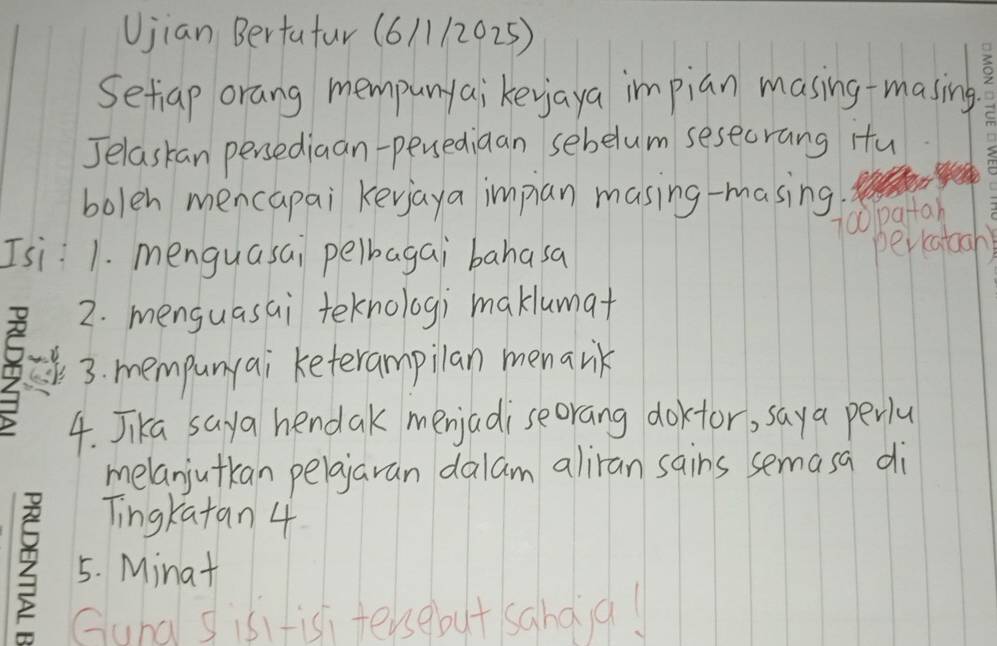 Ujian Bertutur (6/1/2025)
Setiap orang mempunyai kerjaya impian masing-masing.
Jelaskan persediaan-persediaan sebelum seseorang itu
boleh mencapai kerjaya impian masing-masing.
700 patah
perkataan
Isi: 1. menguasai pelbagai bahasa
2. menguasai teknologi maklumat
3. mempunyai keterampilan menarik
4. Jika saya hendak menjadi seorang doktor, saya perlu
melanjutkan pelajaran dalam aliran sains semasa di
Tingkatan 4
5. Minat
Guna 5 isi-isi tersebut sahaja!
PRUDENTIAL
PRUDENTIAL B
MON TUE WED